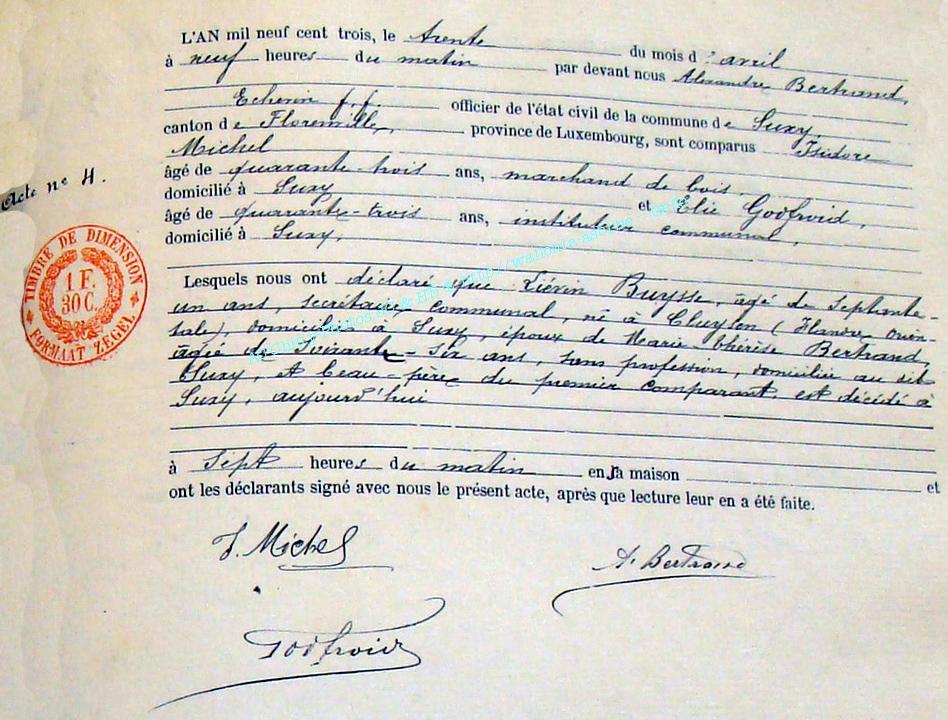 L'AN mil neuf cent trois, le trente du mois d'avril
à neuf heures du matin par devant nous Alexandre Bertrand,
Echevin f.f. officier de l'état civil de la commune de Suxy,
canton de Florenville, province de Luxembourg, sont comparus Isidore
Michel
âgé de quarante-trois ans, marchand de bois,
domicilié à Suxy et Elie Godfroid,
âgé de quarante-trois ans, instituteur communal,
domicilié à Suxy,
Acte n° 4.
TIMBRE DE DIMENSION
1 F.
30 C.
FORMAAT ZEGEL
Lesquels nous ont déclaré que Liévin Buysse, âgé de septante-
un ans, secrétaire communal, né à Cluysen (Flandre orien-
tale), domicilié à Suxy, époux de Marie-Thérèse Bertrand,
âgée de Soixante-six ans, sans profession, domiciliée au dit
Suxy, et beau-père du premier comparant, est décédé à
Suxy, aujourd'hui
à Sept heures du matin en sa maison et
ont les déclarants signé avec nous le présent acte, après que lecture leur en a été faite.
I. Michel
A. Bertrand
Godfroid